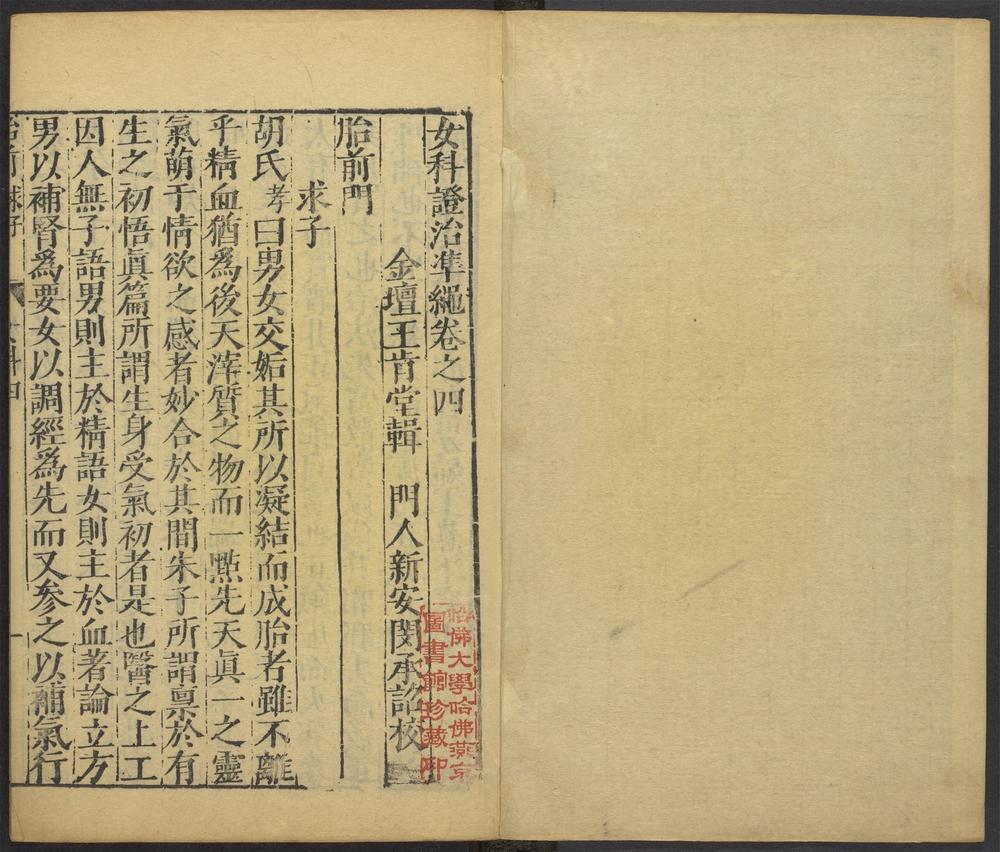 女科證治準繩卷之四
金壇王肯堂輯 門人新安閔承詔校
胎前門
求子
胡氏孝曰男女交姤其所以凝結而成胎者雖不離
乎精血猶為後天滓質之物而一㸃先天眞一之靈
氣萌于情欲之感者妙合於其間朱子所謂禀於有
生之初悟眞篇所謂生身受氣初者是也醫之上工
因人無子語男則主於精語女則主於血著論立方
男以補腎爲要女以調經爲先而又参之以補氣行
胎前 求子 女科四 一
哈佛大學哈佛燕京
圖書館珍藏印